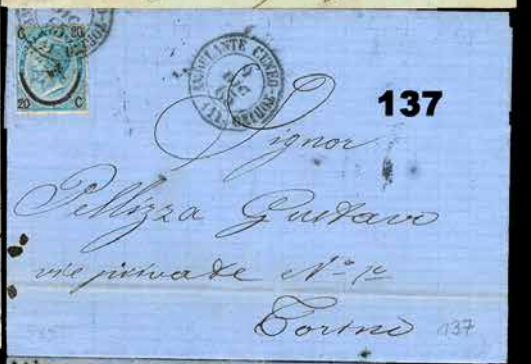 C 20
20 C
AMBULANTE CUNEO-TORINO
137
Signor
Pellizza Gustavo
vie private N=
Torino
137